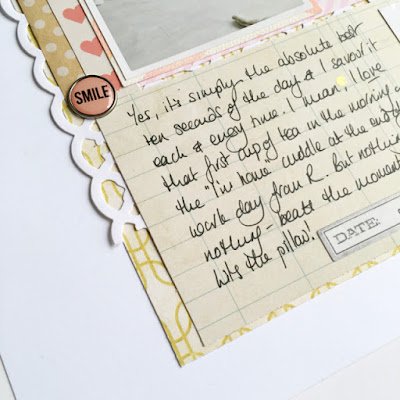 SMILE
Yes, it's simply the absolute best
ten seconds of the day & I savour it
each & every time. I mean, I love
that first cup of tea in the morning &
the "I'm home cuddle at the end of
work day from R. But nothing
nothing - beats the moment
hits the pillow!
DATE: